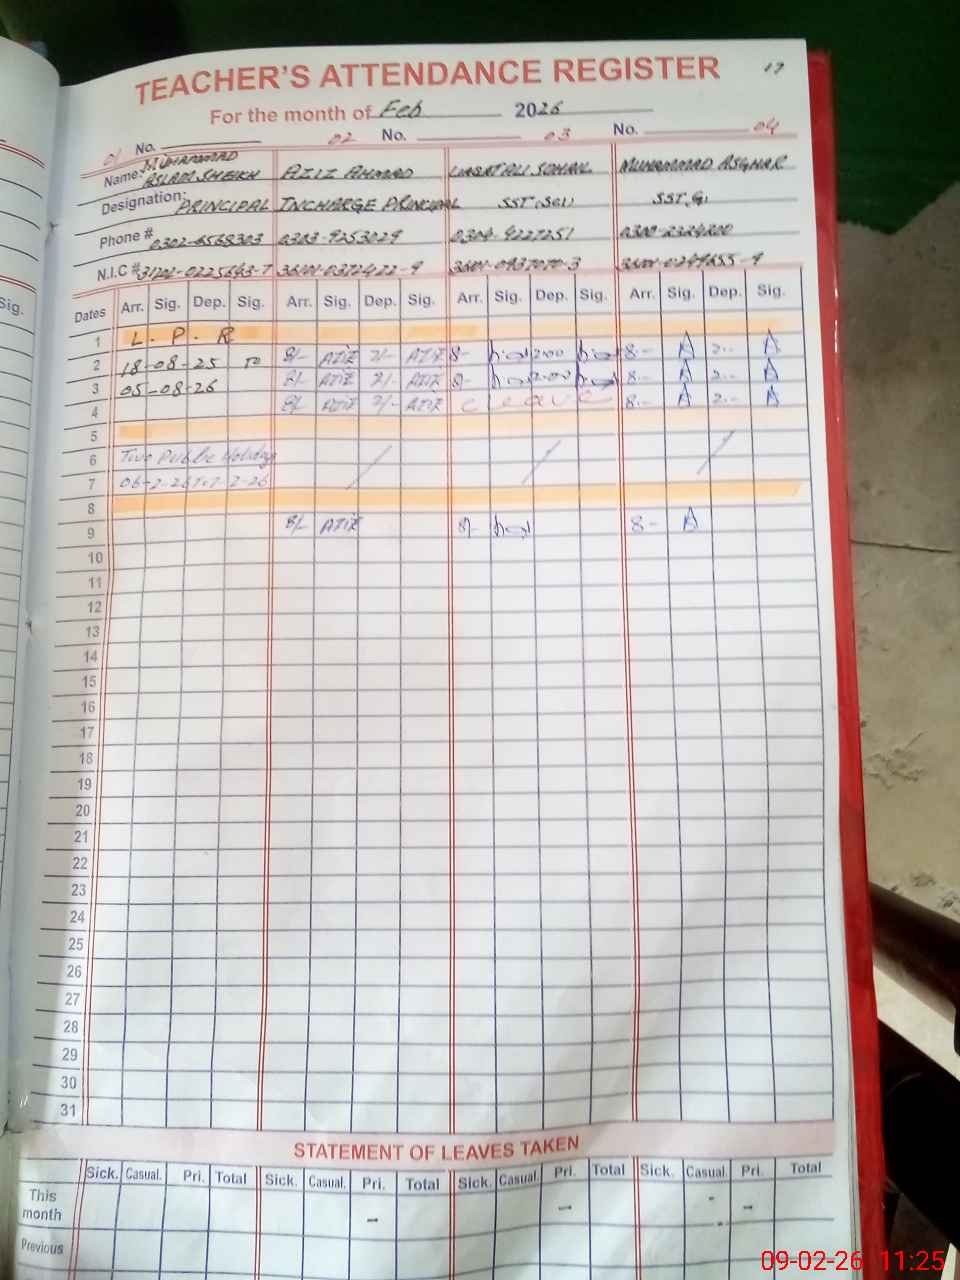 TEACHER'S ATTENDANCE REGISTER 17
For the month of Feb 2026
01 No. 02 No. 03 No. 04
Name: MUHAMMAD ASLAM SHEIKH AZIZ AHMAD LIAQAT ALI SOHAIL MUHAMMAD ASGHAR
Designation: PRINCIPAL INCHARGE PRINCIPAL SST (SCI) SST, G
Phone # 0302-6568303 0303-9253029 0304-9227251 0300-2324200
N.I.C # 31202-0225643-7 36101-0372422-9 36101-0937070-3 36101-0249655-9
Sig. Dates Arr. Sig. Dep. Sig. Arr. Sig. Dep. Sig. Arr. Sig. Dep. Sig. Arr. Sig. Dep. Sig.
1 L. P. R
2 18-08-25 TO 8/- AZIZ 2/- AZIZ 8- 2:00 8-- A 2-- A
3 05-08-26 8/- AZIZ 2/- AZIZ 8- 2:00 8-- A 2-- A
4 8/- AZIZ 2/- AZIZ C leave 8-- A 2-- A
5
6 Two Public Holiday
7 06-2-26 7-2-26
8
9 8/- AZIZ 8- 8- A
10
11
12
13
14
15
16
17
18
19
20
21
22
23
24
25
26
27
28
29
30
31
STATEMENT OF LEAVES TAKEN
Sick. Casual. Pri. Total Sick. Casual. Pri. Total Sick. Casual. Pri. Total Sick. Casual. Pri. Total
This month - - - -
Previous
09-02-26 11:25